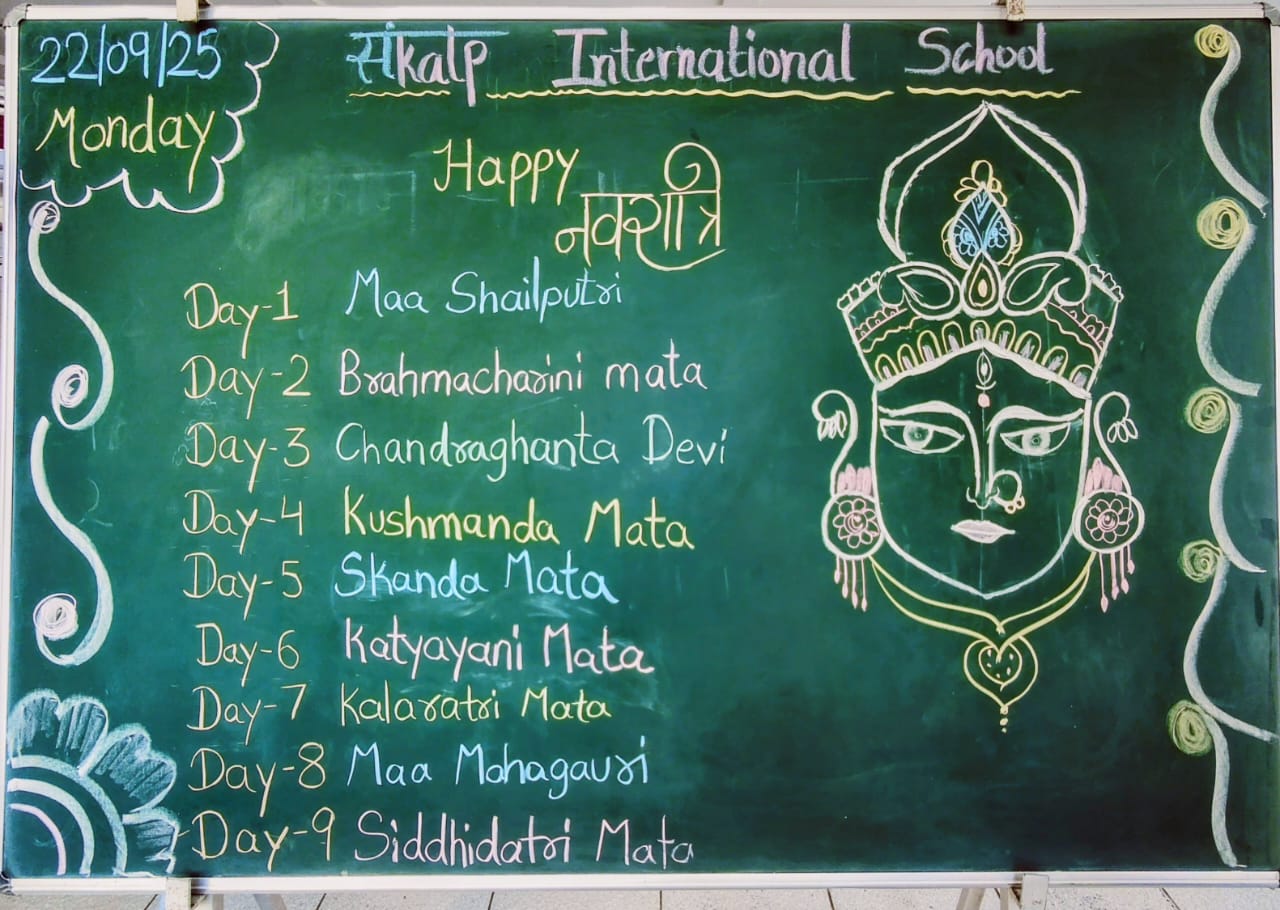 22/09/25
Monday
संkalp International School
Happy
नवरात्रि
Day-1 Maa Shailputri
Day-2 Brahmacharini mata
Day-3 Chandraghanta Devi
Day-4 Kushmanda Mata
Day-5 Skanda Mata
Day-6 Katyayani Mata
Day-7 Kalaratri Mata
Day-8 Maa Mahagauri
Day-9 Siddhidatri Mata